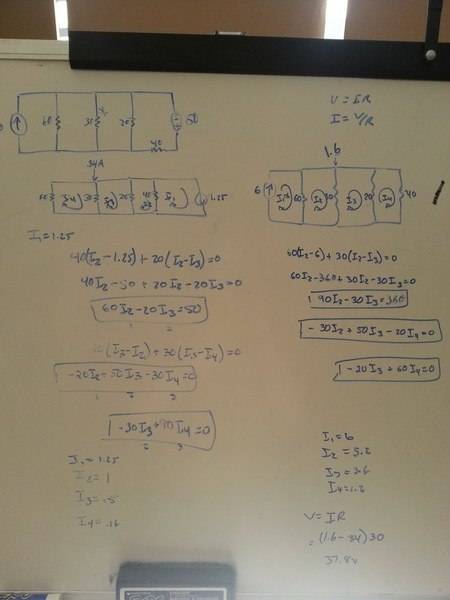 V = IR
I = V/R
60
30
20
40
.34A
60
30
20
40
1.25
I₁ = 1.25
40(I₂ - 1.25) + 20(I₂ - I₃) = 0
40I₂ - 50 + 20I₂ - 20I₃ = 0
60I₂ - 20I₃ = 50
(I₃ - I₂) + 30(I₃ - I₄) = 0
-20I₂ + 50I₃ - 30I₄ = 0
-30I₃ + 90I₄ = 0
I₁ = 1.25
I₂ = 1
I₃ = .5
I₄ = .16
1.6
6
60
30
20
40
60(I₂ - 6) + 30(I₂ - I₃) = 0
60I₂ - 360 + 30I₂ - 30I₃ = 0
90I₂ - 30I₃ = 360
-30I₂ + 50I₃ - 20I₄ = 0
-20I₃ + 60I₄ = 0
I₁ = 6
I₂ = 5.2
I₃ = 3.6
I₄ = 1.2
V = IR
= (1.6 - .34) 30
37.8v